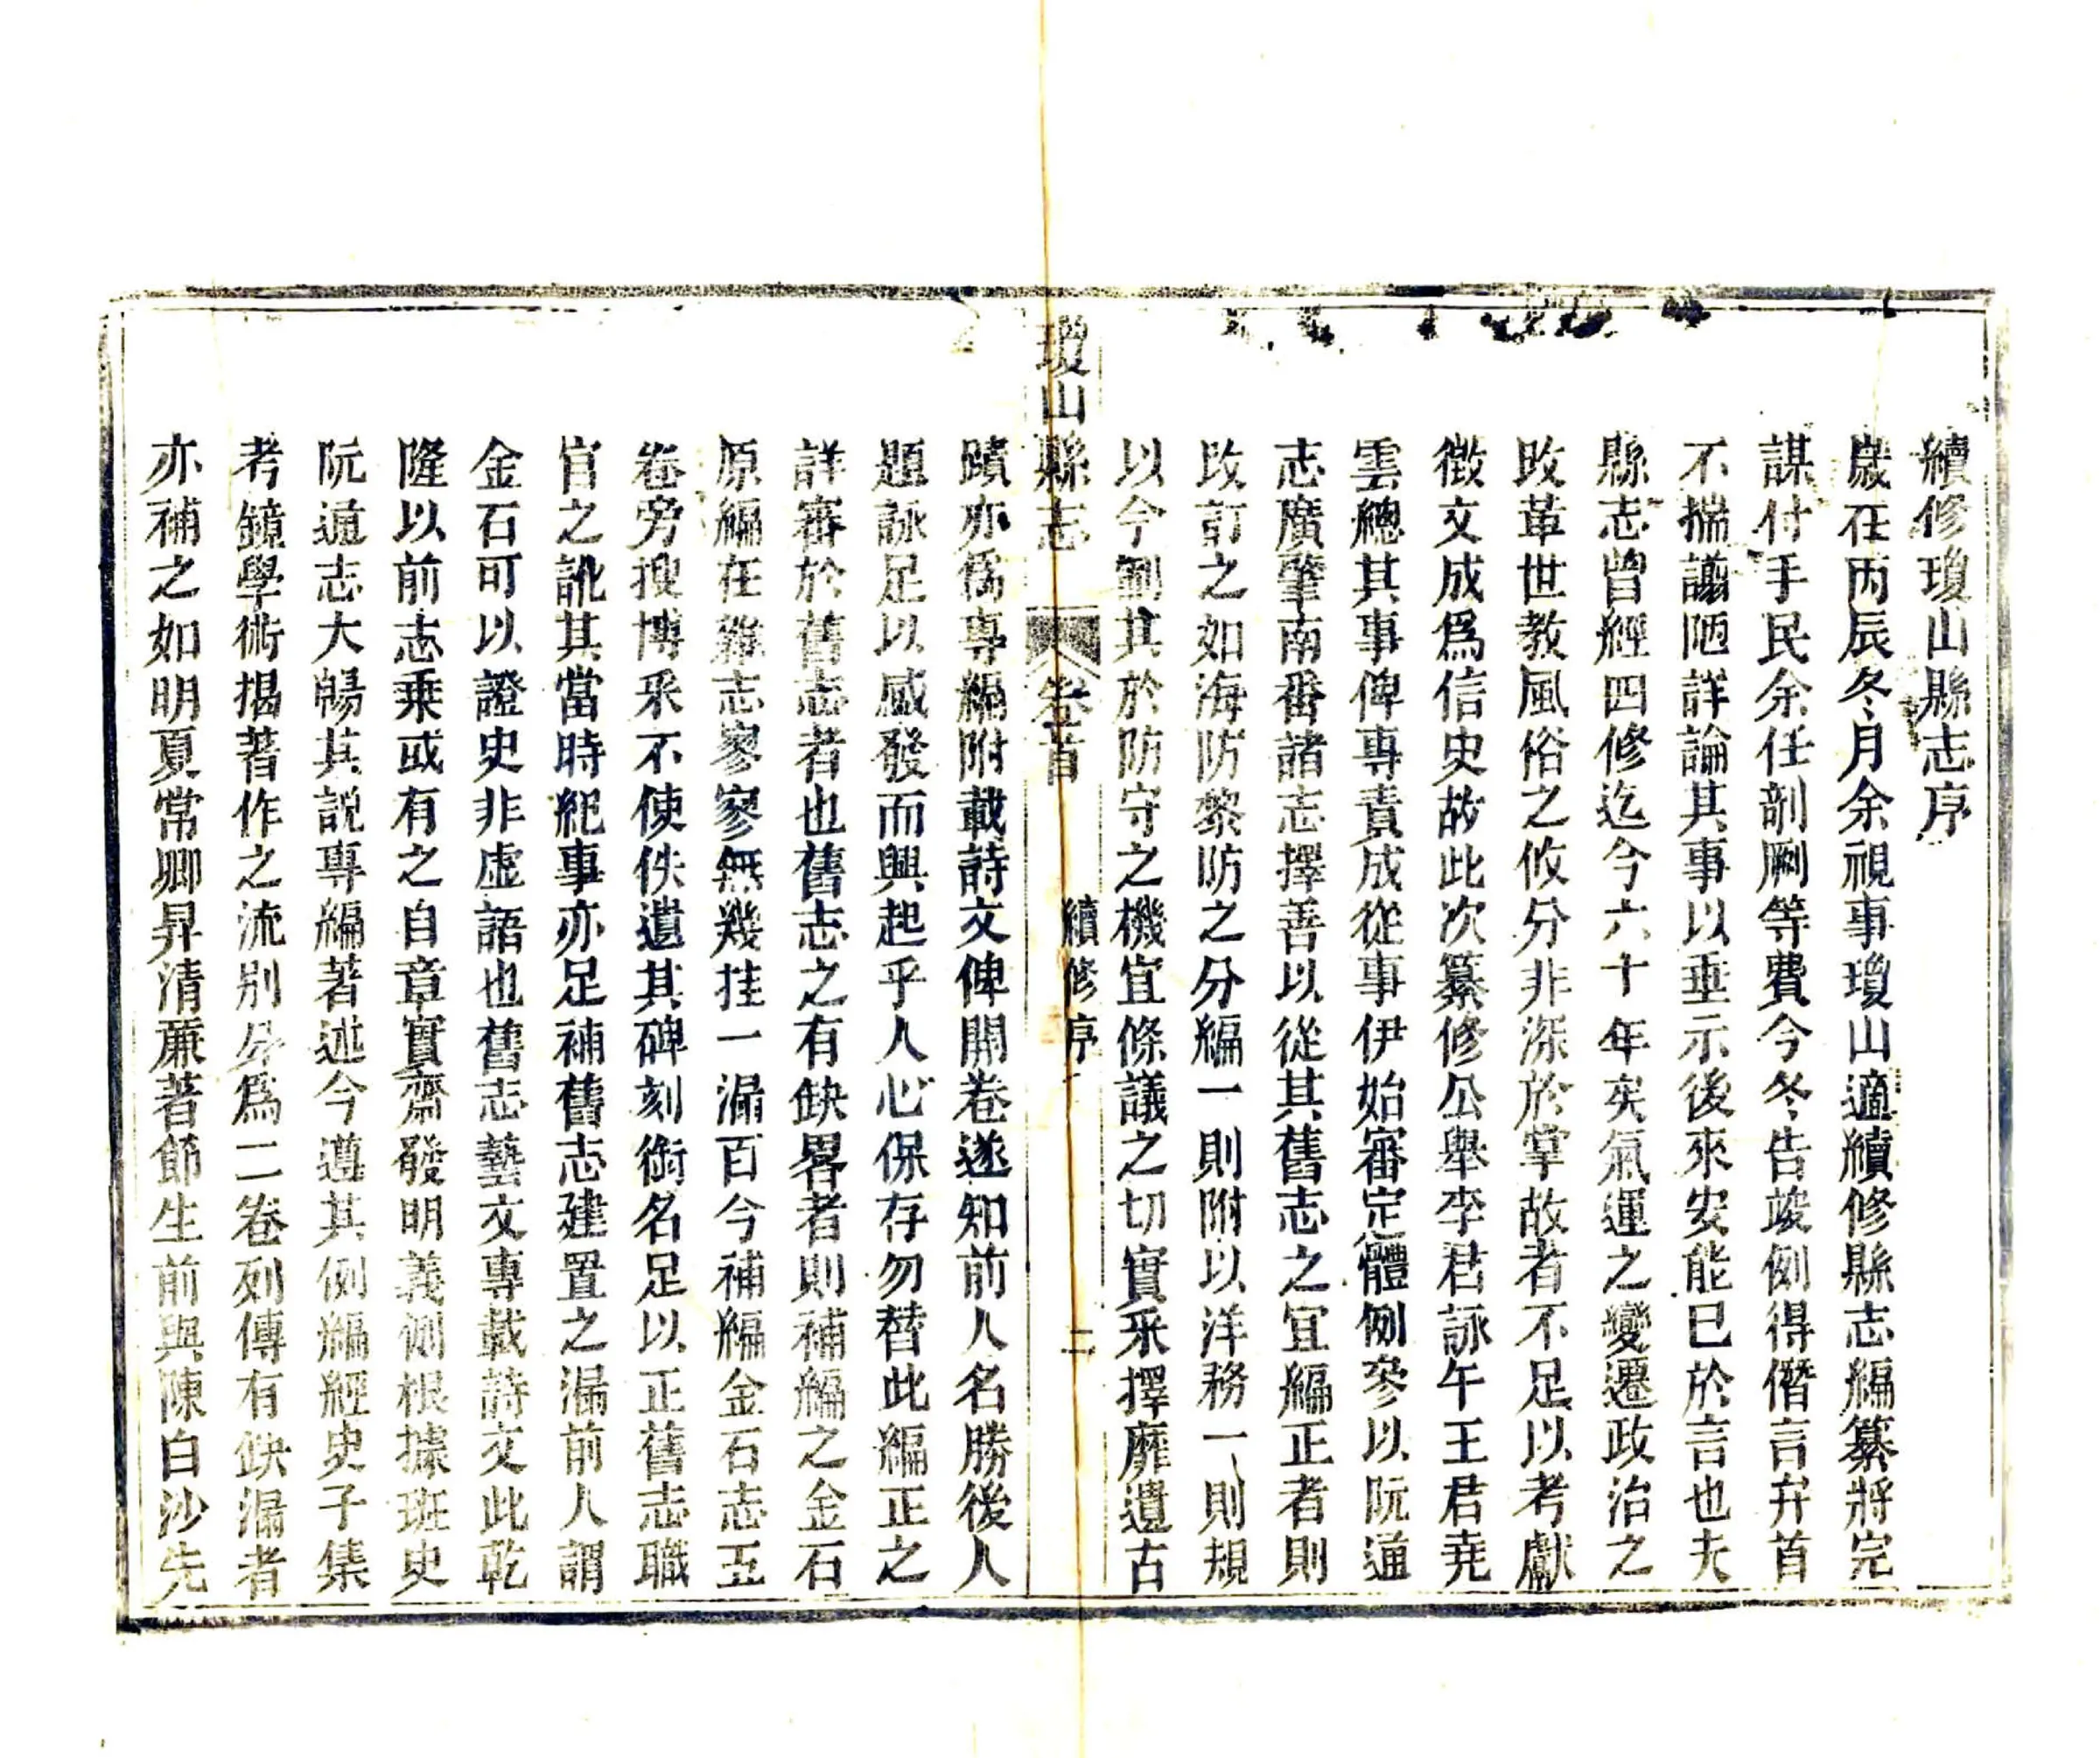 續修瓊山縣志序
歲在丙辰冬月余視事瓊山適續修縣志編纂將完
謀付手民余任剞劂等費今冬告竣例得僭言弁首
不揣譾陋詳論其事以垂示後來安能已於言也夫
縣志曾經四修迄今六十年矣氣運之變遷政治之
改革世教風俗之攸分非深於掌故者不足以考獻
徵文成爲信史故此次纂修公舉李君詠午王君堯
雲總其事俾專責成從事伊始審定體例參以阮通
志廣肇南番諸志擇善以從其舊志之宜編正者則
改訂之如海防黎防之分編一則附以洋務一則規
以今制其於防守之機宜條議之切實采擇靡遺古
瓊山縣志 卷首 續修序 二
蹟亦爲專編附載詩文俾開卷遂知前人名勝後人
題詠足以感發而興起乎人心保存勿替此編正之
詳審於舊志者也舊志之有缺畧者則補編之金石
原編在雜志寥寥無幾挂一漏百今補編金石志五
卷旁搜博采不使佚遺其碑刻銜名足以正舊志職
官之訛其當時紀事亦足補舊志建置之漏前人謂
金石可以證史非虛語也舊志藝文專載詩文此乾
隆以前志乘或有之自章實齋發明義例根據班史
阮通志大暢其說專編著述今遵其例編經史子集
考鏡學術揭著作之流別分爲二卷列傳有缺漏者
亦補之如明夏常卿昇清亷著節生前與陳白沙先